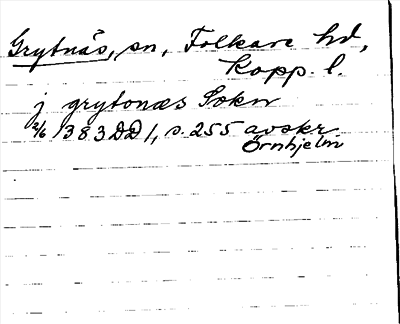 Grytnäs, sn, Folkare hd,
Kopp. l.
j grytonæs Sokn
2/6 1383 DD 1, s. 255 avskr.
Örnhjelm